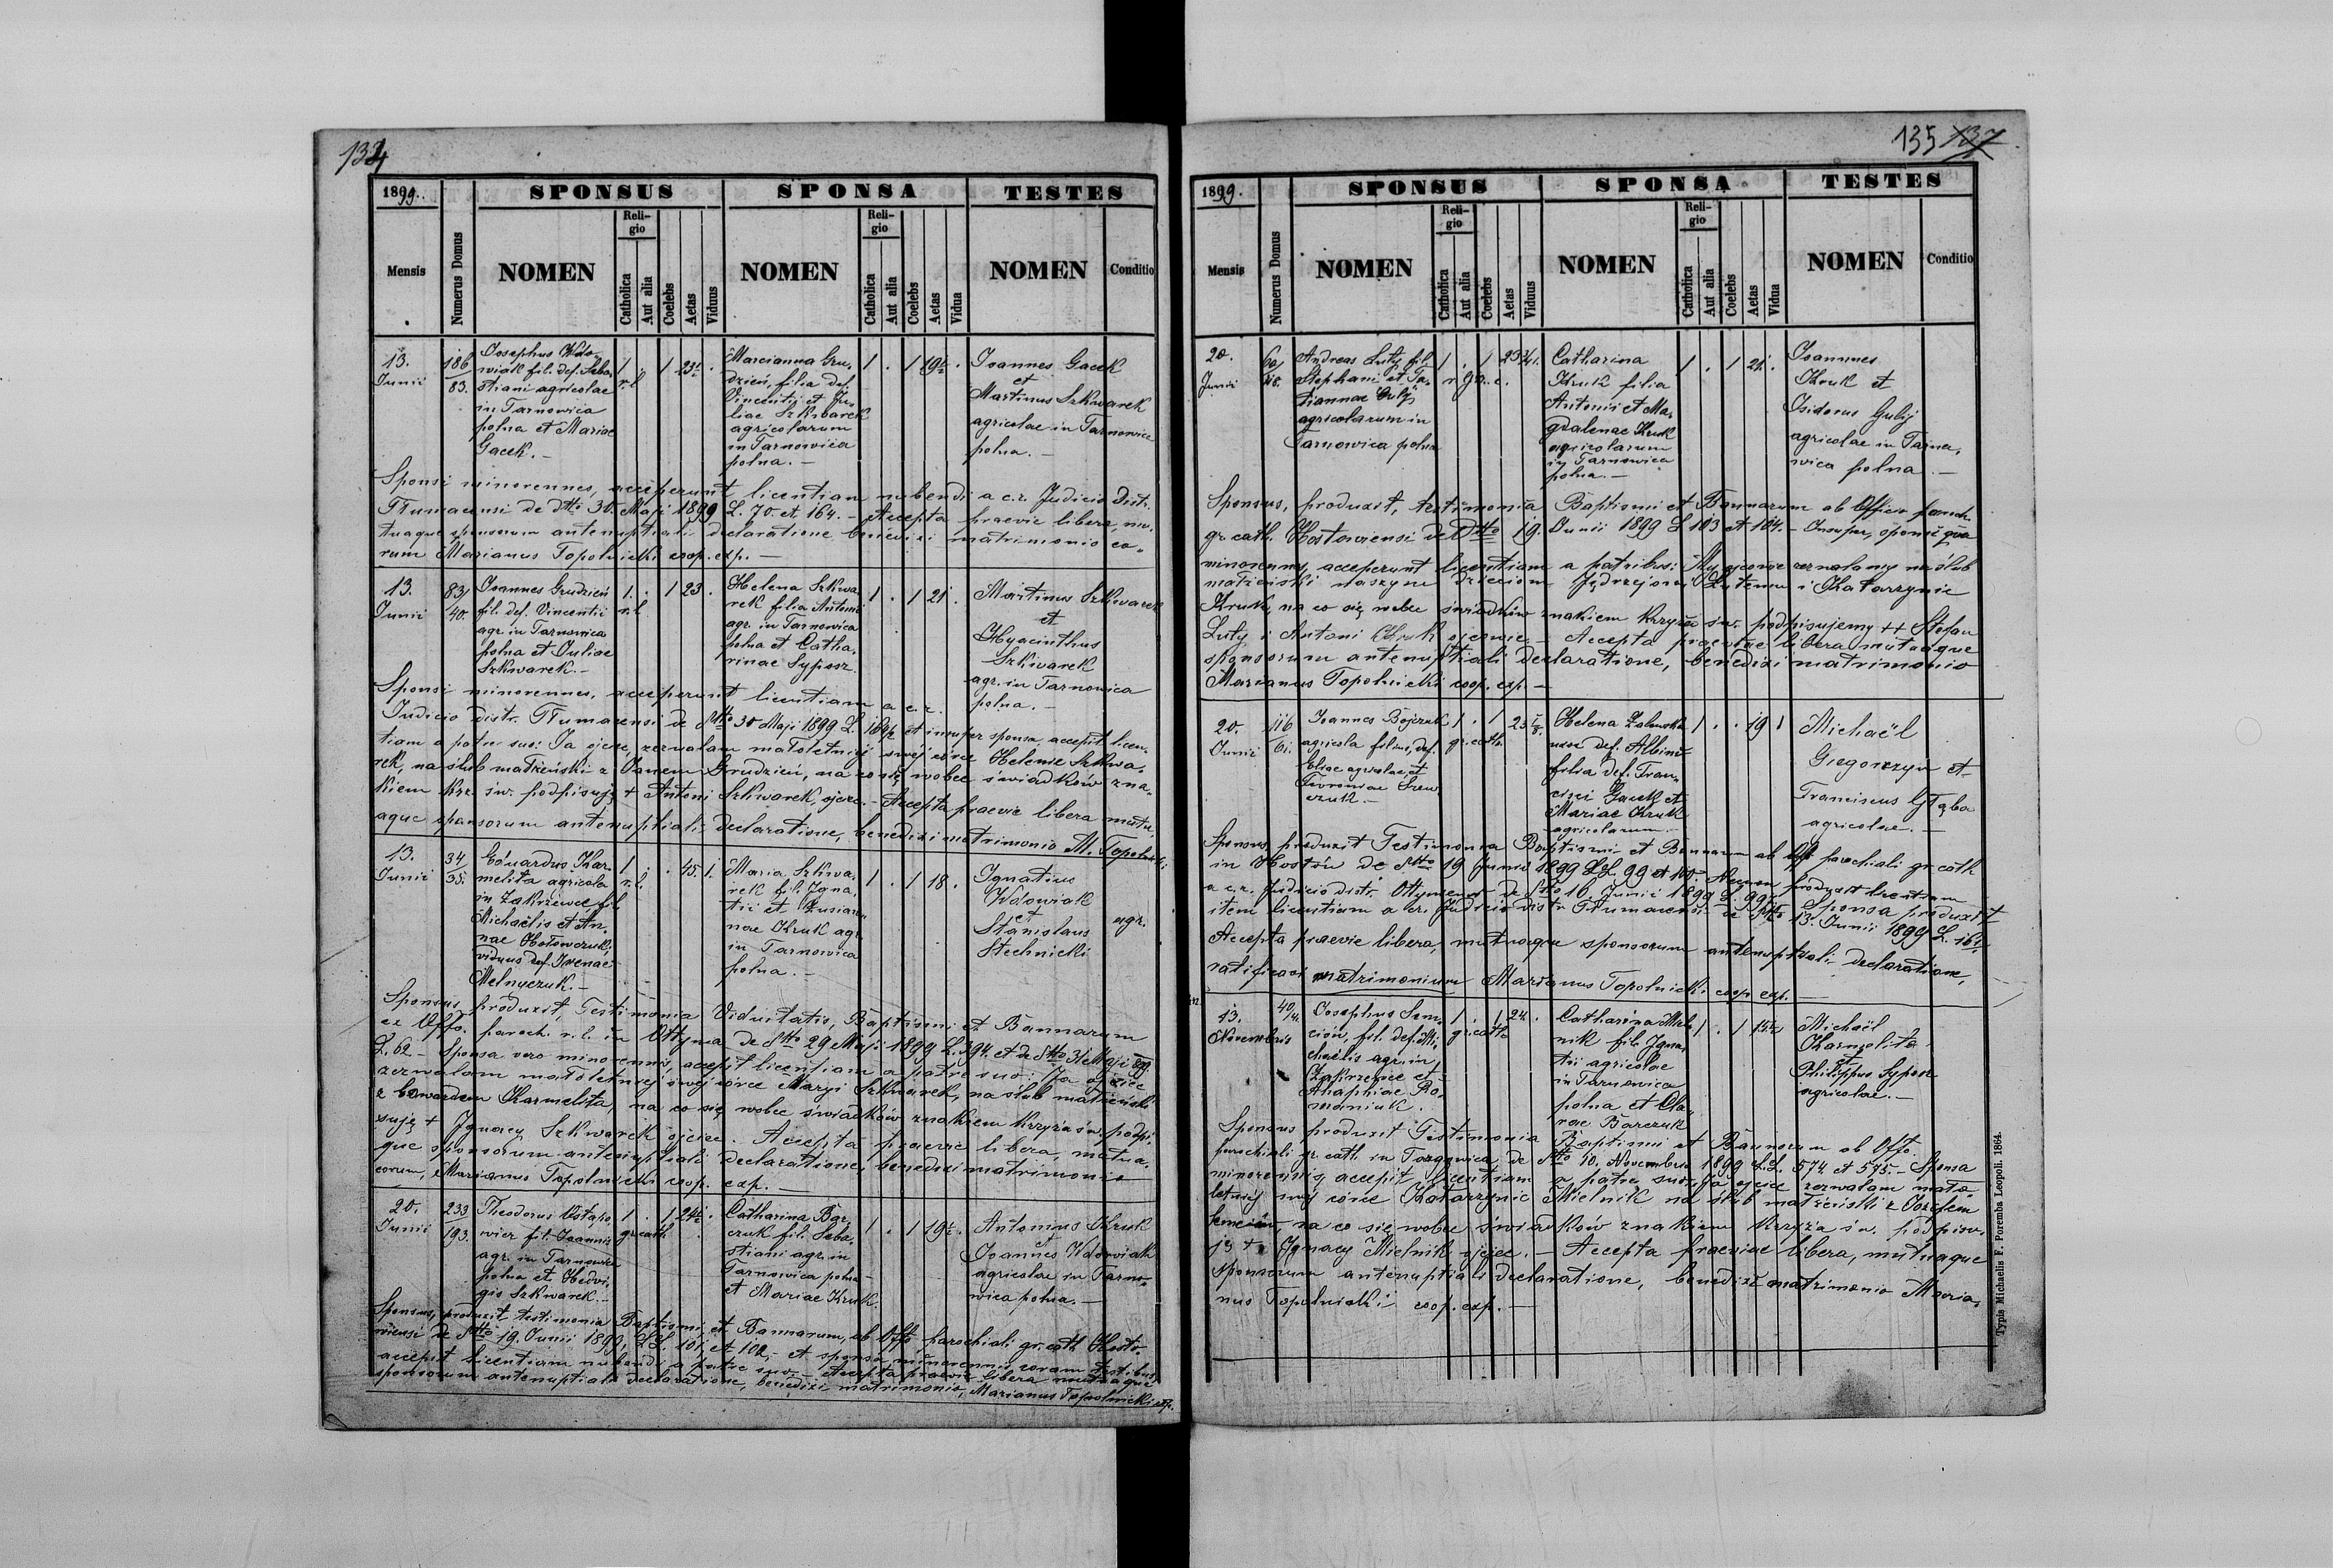 134
1899.
SPONSUS
SPONSA
TESTES
Mensis
Numerus Domus
NOMEN
Reli-
gio
Catholica
Aut alia
Coelebs
Aetas
Viduus
NOMEN
Reli-
gio
Catholica
Aut alia
Coelebs
Aetas
Vidua
NOMEN
Conditio
13.
Junii
186
83.
Josephus Wdo-
wiak fil. def. Seba-
stiani agricolae
in Tarnowica
polna et Mariae
Gacek. –
1
r.l.
1
Marcianna Gru-
dzień, filia def.
Vincentii et Ju-
liae Szkwarek
agricolarum
in Tarnowica
polna. –
1 . 1
Joannes Gacek
et
Martinus Szkwarek
agricolae in Tarnowica
polna. –
Sponsi minorennes, acceperunt licentiam nubendi a c.r. Judicio distr.
Tłumacensi de dtto 31. Maji 1899 L. 70. et 164. – Accepta praevie libera, mu-
tuaque sponsorum antenuptiali declaratione benedixi matrimonio eo-
rum Marianus Topolnicki coop. exp. –
13.
Junii
83
40.
Joannes Grudzień
fil. def. Vincentii
agr. in Tarnowica
polna et Juliae
Szkwarek. –
1.
r.l.
1 23 .
Helena Szkwa-
rek filia Antonii
agr. in Tarnowica
polna et Catha-
rinae Syposz
1 . 1 21 .
Martinus Szkwarek
et
Hyacinthus
Szkwarek
agr. in Tarnowica
polna. –
Sponsi minorennes, acceperunt licentiam a c.r.
Judicio distr. Tłumacensi de dtto 30 Maji 1899 L. et insuper sponsa accepit licen-
tiam a patre suo: Ja ojciec, zezwalam małoletniej swej córce Helenie Szkwa-
rek, na ślub małżeński z Janem Grudzień, na co się wobec świadków zna-
kiem krz. św. podpisuję + Antoni Szkwarek, ojciec. – Accepta praevie libera mutu-
aque sponsorum antenuptiali declaratione, benedixi matrimonio M. Topolnicki
13.
Junii
34
35.
Eduardus Kar-
melita agricola
in Zakrzewce fil.
Michaëlis et An-
nae Hołowczuk
viduus def. Irenae
Melnyczuk. –
1
r.l.
. 45. 1.
Maria Szkwa-
rek fil. Igna-
tii et Zusian-
nae Kruk agr.
in Tarnowica
polna. –
1 . 1 18 .
Ignatius
Wdowiak
et
Stanislaus
Stechnicki
agr.
Sponsus produxit, Testimonia Viduitatis, Baptismi et Bannorum
ex Offo. paroch. r.l. in Ottynia de dtto 29 Maji 1899 L. 394. et de dtto 31 Maji 899
L. 62 – Sponsa vero minorennis, accepit licentiam a patre suo: Ja ojciec
zezwalam małoletniej swej córce Maryi Szkwarek, na ślub małżeński
z Edwardem Karmelita, na co się wobec świadków znakiem krzyża św. podpi-
suję + Ignacy Szkwarek ojciec. Accepta praevie libera, mutua-
que sponsorum antenuptiali declaratione, benedixi matrimonio
eorum, Marianus Topolnicki coop. exp. –
20.
Junii
233
193.
Theodorus Ostapo-
wicz fil. Joannis
agr. in Tarnowica
polna et Hedvi-
gis Szkwarek. –
1
gr.cath
. 1
Catharina Bar-
czuk fil. Seba-
stiani agr. in
Tarnowica polna
et Mariae Kruk.
1 . 1
Antonius Kruk
et
Joannes Wdowiak
agricolae in Tarno-
wica polna. –
Sponsus, produxit testimonia Baptismi et Bannorum, ab Offo parochiali gr. cath Hosto-
wiensi de dtto 19. Junii 1899, LL. 101 et 102, – et sponsa minorennis coram testibus,
accepit licentiam nubendi a patre suo. – Accepta praevie libera mutuaque
sponsorum antenuptiali declaratione, benedixi matrimonio, Marianus Topolnicki exp.
135 137
1899.
SPONSUS
SPONSA
TESTES
Mensis
Numerus Domus
NOMEN
Reli-
gio
Catholica
Aut alia
Coelebs
Aetas
Viduus
NOMEN
Reli-
gio
Catholica
Aut alia
Coelebs
Aetas
Vidua
NOMEN
Conditio
20.
Junii
60
Andreas Luty fil.
Stephani et Ta-
tiannae Gulij
agricolarum in
Tarnowica polna
1 . 1
Catharina
Kruk filia
Antonii et Ma-
gdalenae Kruk
agricolarum
in Tarnowica
polna. –
1 . 1 21 .
Joannes
Kruk et
Isidorus Gulij
agricolae in Tarno-
wica polna. –
Sponsus, produxit, testimonia Baptismi et Bannorum ab Officio paroch.
gr. cath. Hostowiensi de dtto 19. Junii 1899 L 103 et 104. – Insuper, sponsi qua
minorennes, acceperunt licentiam a patribus: My ojcowie zezwalamy na ślub
małżeński naszym dzieciom Jędrzejowi Lutemu i Katarzynie
Kruk, na co się wobec świadków znakiem krzyża św. podpisujemy ++ Stefan
Luty i Antoni Kruk ojcowie. – Accepta praeviae libera mutuaque
sponsorum antenuptiali declaratione, benedixi matrimonio
Marianus Topolnicki coop. exp. –
20.
Junii
116
61.
Joannes Bojczuk
agricola filius def.
Eliae agricolae, et
Fevroniae Szew-
czuk. –
1 . 1
gr. cath.
Helena Zalewska
def. Albini
filia def. Fran-
cisci Gacek et
Mariae Kruk
agricolarum. –
1 . . 19 1
Michaël
Gregorczyn et
Franciscus Głąba
agricolae. –
Sponsus, produxit Testimonia Baptismi et Bannorum ab Offo parochiali gr. cath
in Hostów de dtto 19 Junii 1899 LL. 99 et 100. Necnon produxit licentiam
a c.r. Judicio distr. Ottyniensi de dtto 16. Junii 1899 L. Sponsa produxit
item licentiam a cr. Judicio distr. Tłumacensi de dtto 13. Junii 1899 L.
Accepta praevie libera, mutuaque sponsorum antenuptiali declaratione,
ratificavi matrimonium Marianus Topolnicki coop. exp. –
13.
Novembris
40
Josephus Sem-
cień, fil. def. Mi-
chaëlis agr. in
Zakrzewce et
Anaphiae Ro-
maniuk.
1 . 1 24 .
gr. cath
Catharina Miel-
nik fil. Igna-
tii agricolae
in Tarnowica
polna et Cla-
rae Barczuk
1 . 1
Michaël
Karmelita
et
Philippus Syposz
agricolae. –
Sponsus produxit Testimonia Baptismi et Bannorum ab Offo.
parochiali gr. cath. in de dtto 10. Novembris 1899 L.L. 574 et 575. – Sponsa
minorennis, accepit licentiam a patre suo: Ja ojciec zezwalam mało-
letniej mej córce Katarzynie Mielnik na ślub małżeński z Józefem
Semcień – na co się wobec świadków znakiem krzyża św. podpisu-
ję + Ignacy Mielnik ojciec. – Accepta praeviae libera, mutuaque
sponsorum antenuptiali declaratione, benedixi matrimonio Maria-
nus Topolnicki coop. exp. –
Typis Michaelis F. Poremba Leopoli. 1864.